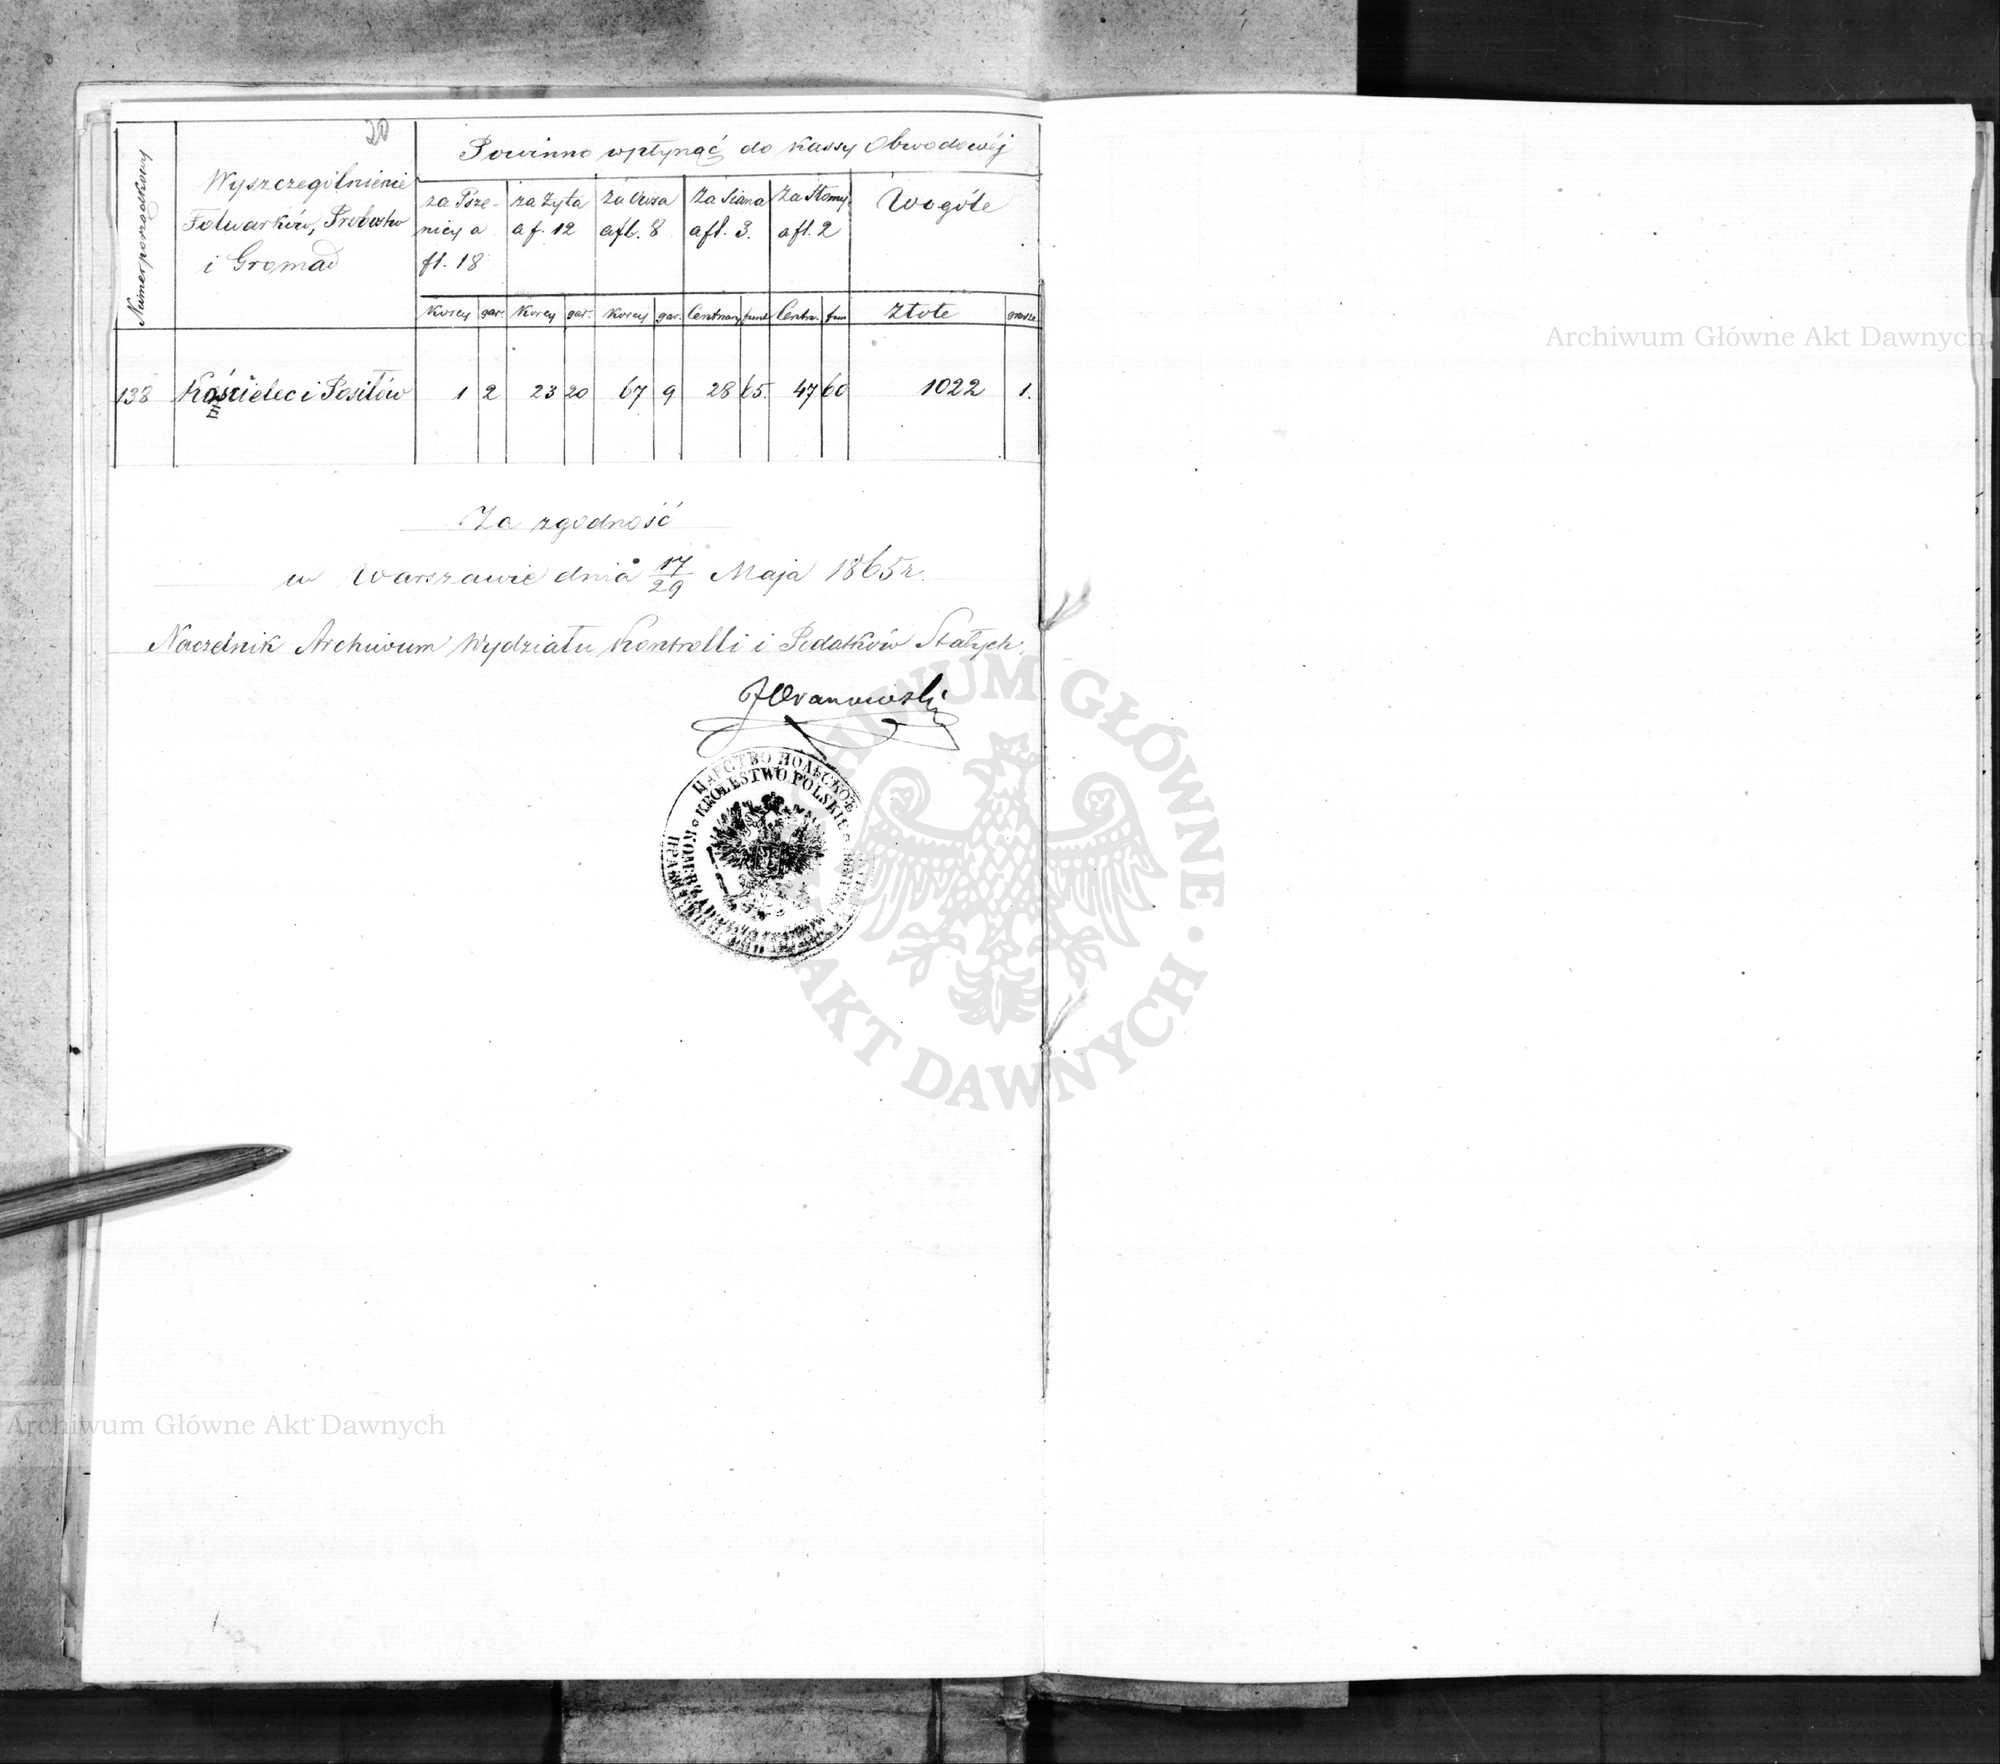 20
Numer porządkowy
Wyszczególnienie
Folwarków, Probostw
i Gromad
Powinno wpłynąć do kassy Obwodowéj
za Psze-
nicy a
fl. 18
za Żyta
a f. 12
za Owsa
a fl. 8
Za Siana
a fl. 3.
Za Słomy
a fl. 2
Wogóle
Korcy gar. Korcy gar. Korcy gar. Centnary funt Centn. fun Złote grosze
138 Kościelec i Posiłów 1 2 23 20 67 9 28 65. 47 60 1022 1.
Za zgodność
w Warszawie dnia 17/29 Maja 1865 r.
Naczelnik Archiwum Wydziału Kontrolli i Podatków Stałych.
ЦАРСТВО ПОЛЬСКОЕ
KRÓLESTWO POLSKIE
ARCHIWUM GŁÓWNE AKT DAWNYCH
Archiwum Główne Akt Dawnych
Archiwum Główne Akt Dawnych